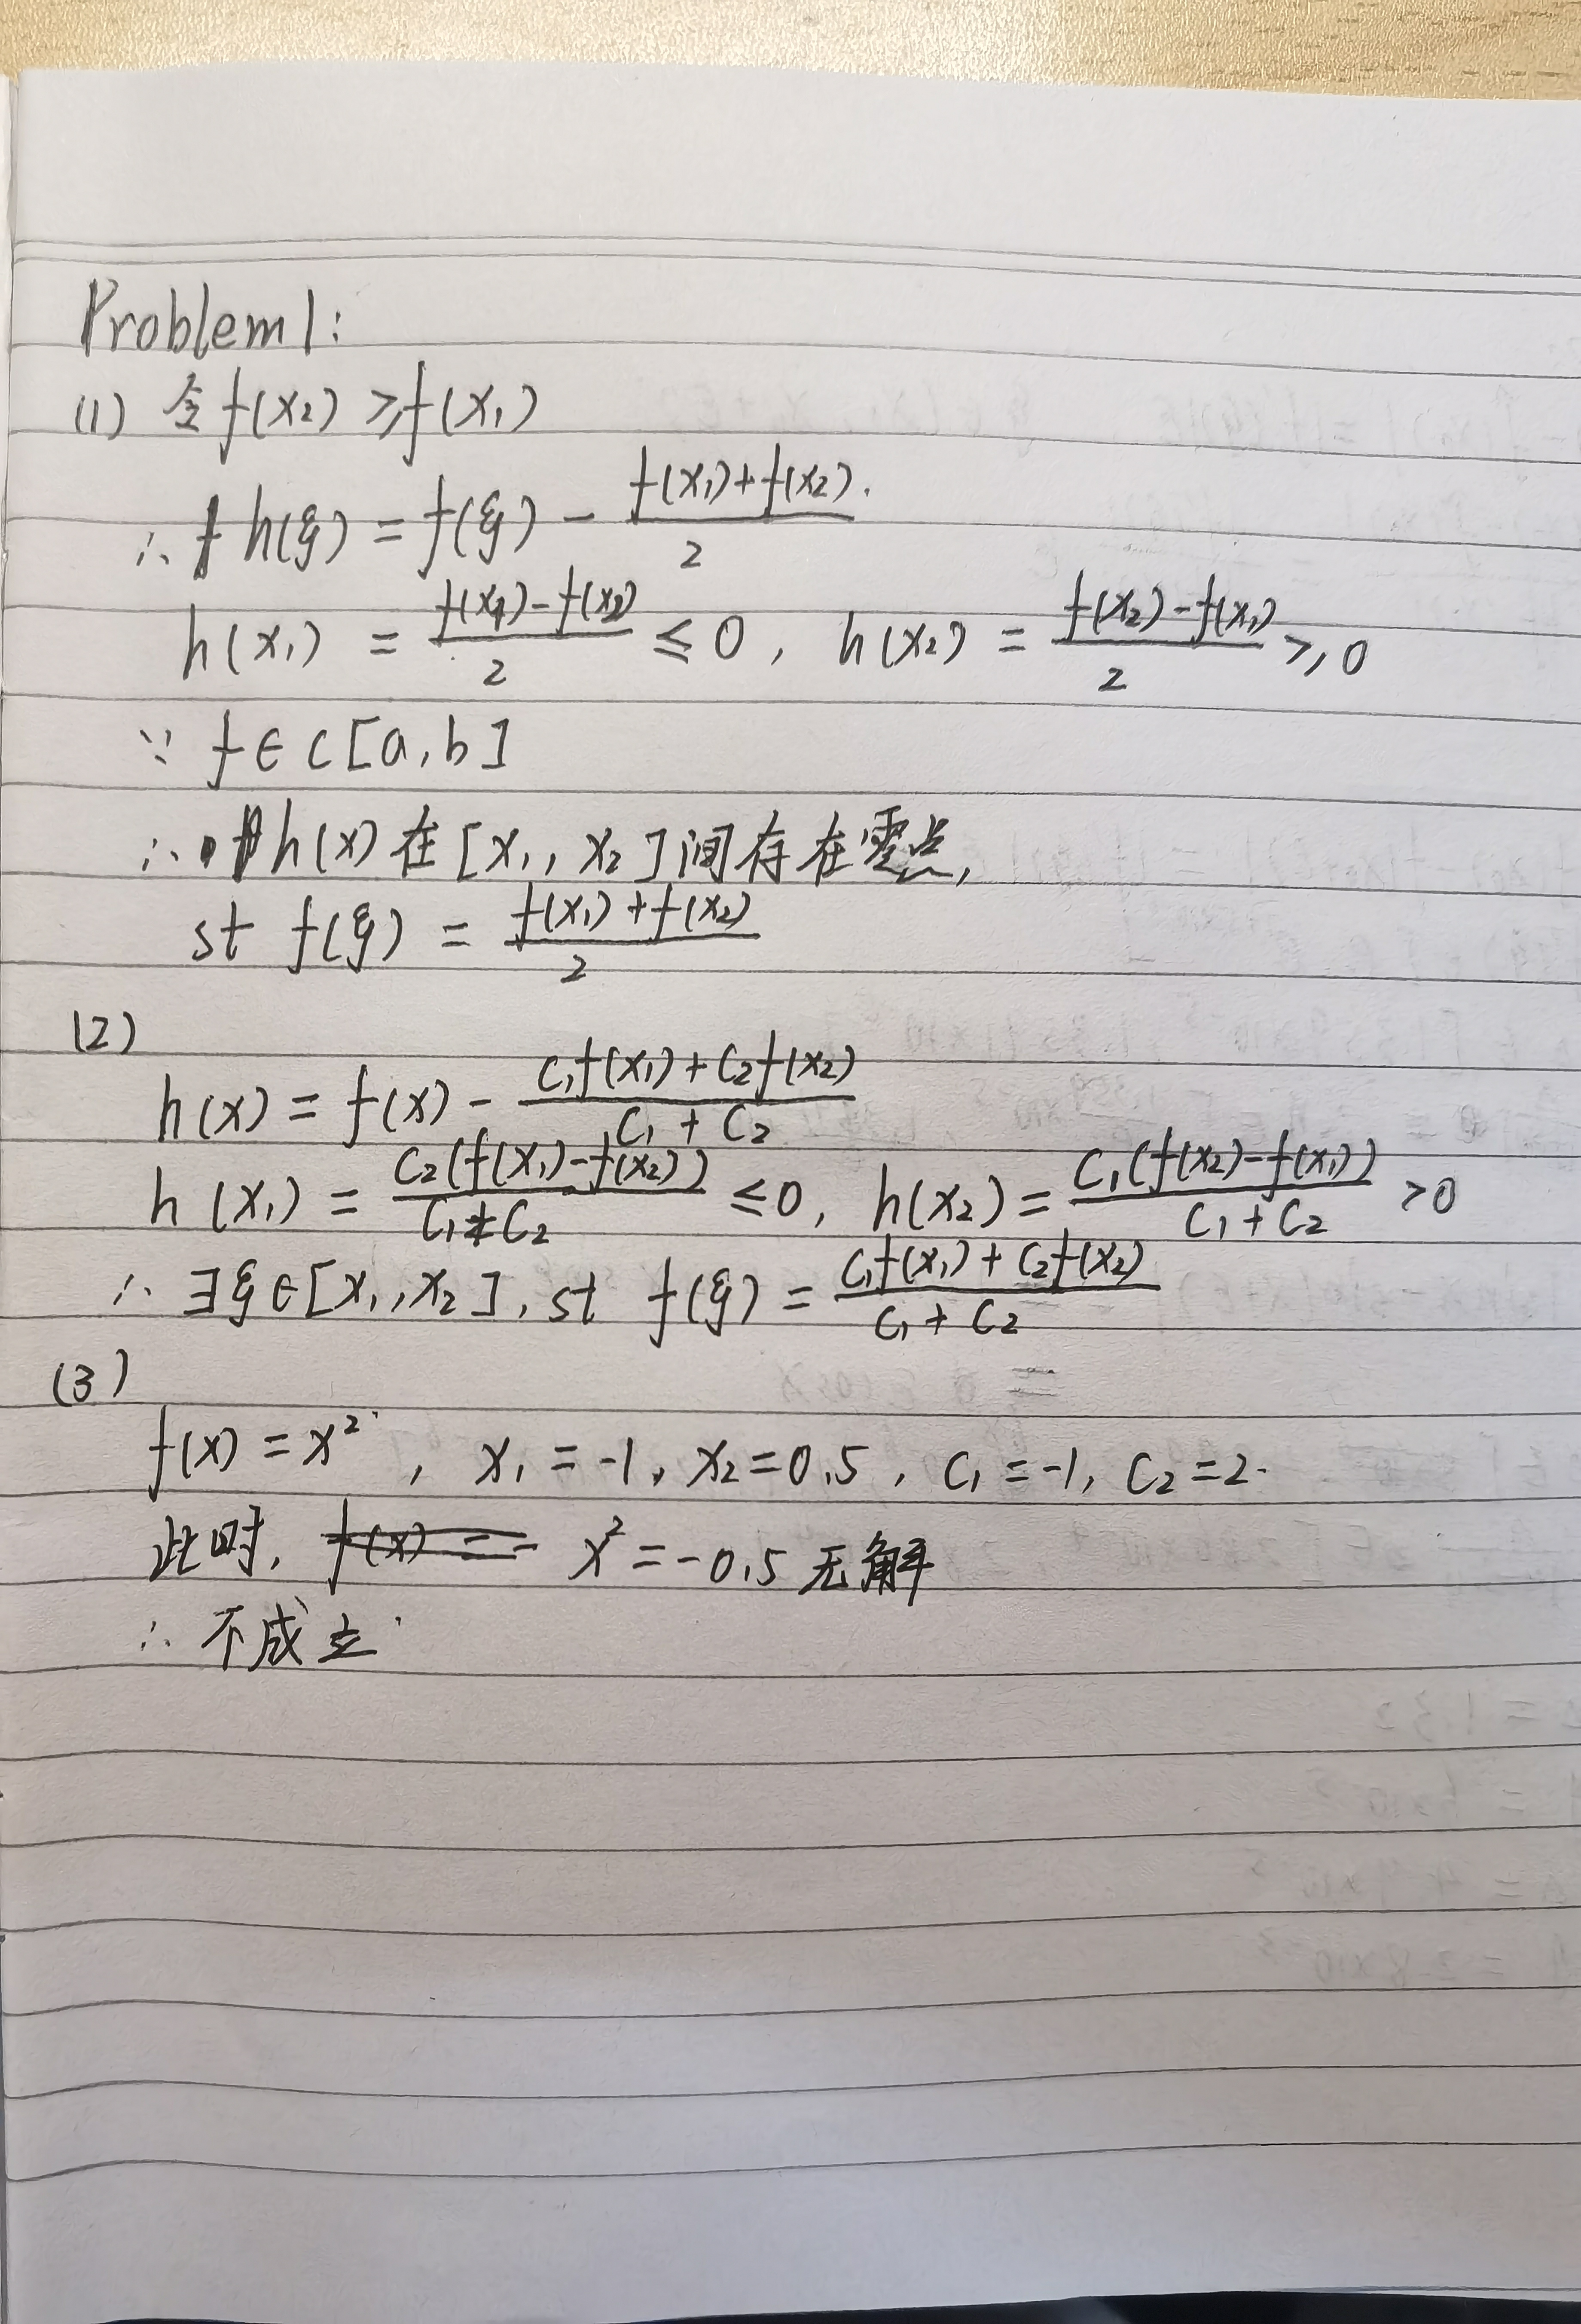 Problem 1:
(1) 令 f(x₂) ≥ f(x₁)
∴ h(ξ) = f(ξ) - (f(x₁)+f(x₂))/2.
h(x₁) = (f(x₁)-f(x₂))/2 ≤ 0, h(x₂) = (f(x₂)-f(x₁))/2 ≥ 0
∵ f∈C[a,b]
∴ h(x) 在 [x₁, x₂] 间存在零点,
st f(ξ) = (f(x₁)+f(x₂))/2
(2)
h(x) = f(x) - (C₁f(x₁)+C₂f(x₂))/(C₁+C₂)
h(x₁) = C₂(f(x₁)-f(x₂))/(C₁+C₂) ≤0, h(x₂) = C₁(f(x₂)-f(x₁))/(C₁+C₂) >0
∴ ∃ξ∈[x₁,x₂], st f(ξ) = (C₁f(x₁)+C₂f(x₂))/(C₁+C₂)
(3)
f(x) = x², x₁ = -1, x₂=0.5, C₁=-1, C₂=2.
此时, x²=-0.5 无解
∴ 不成立